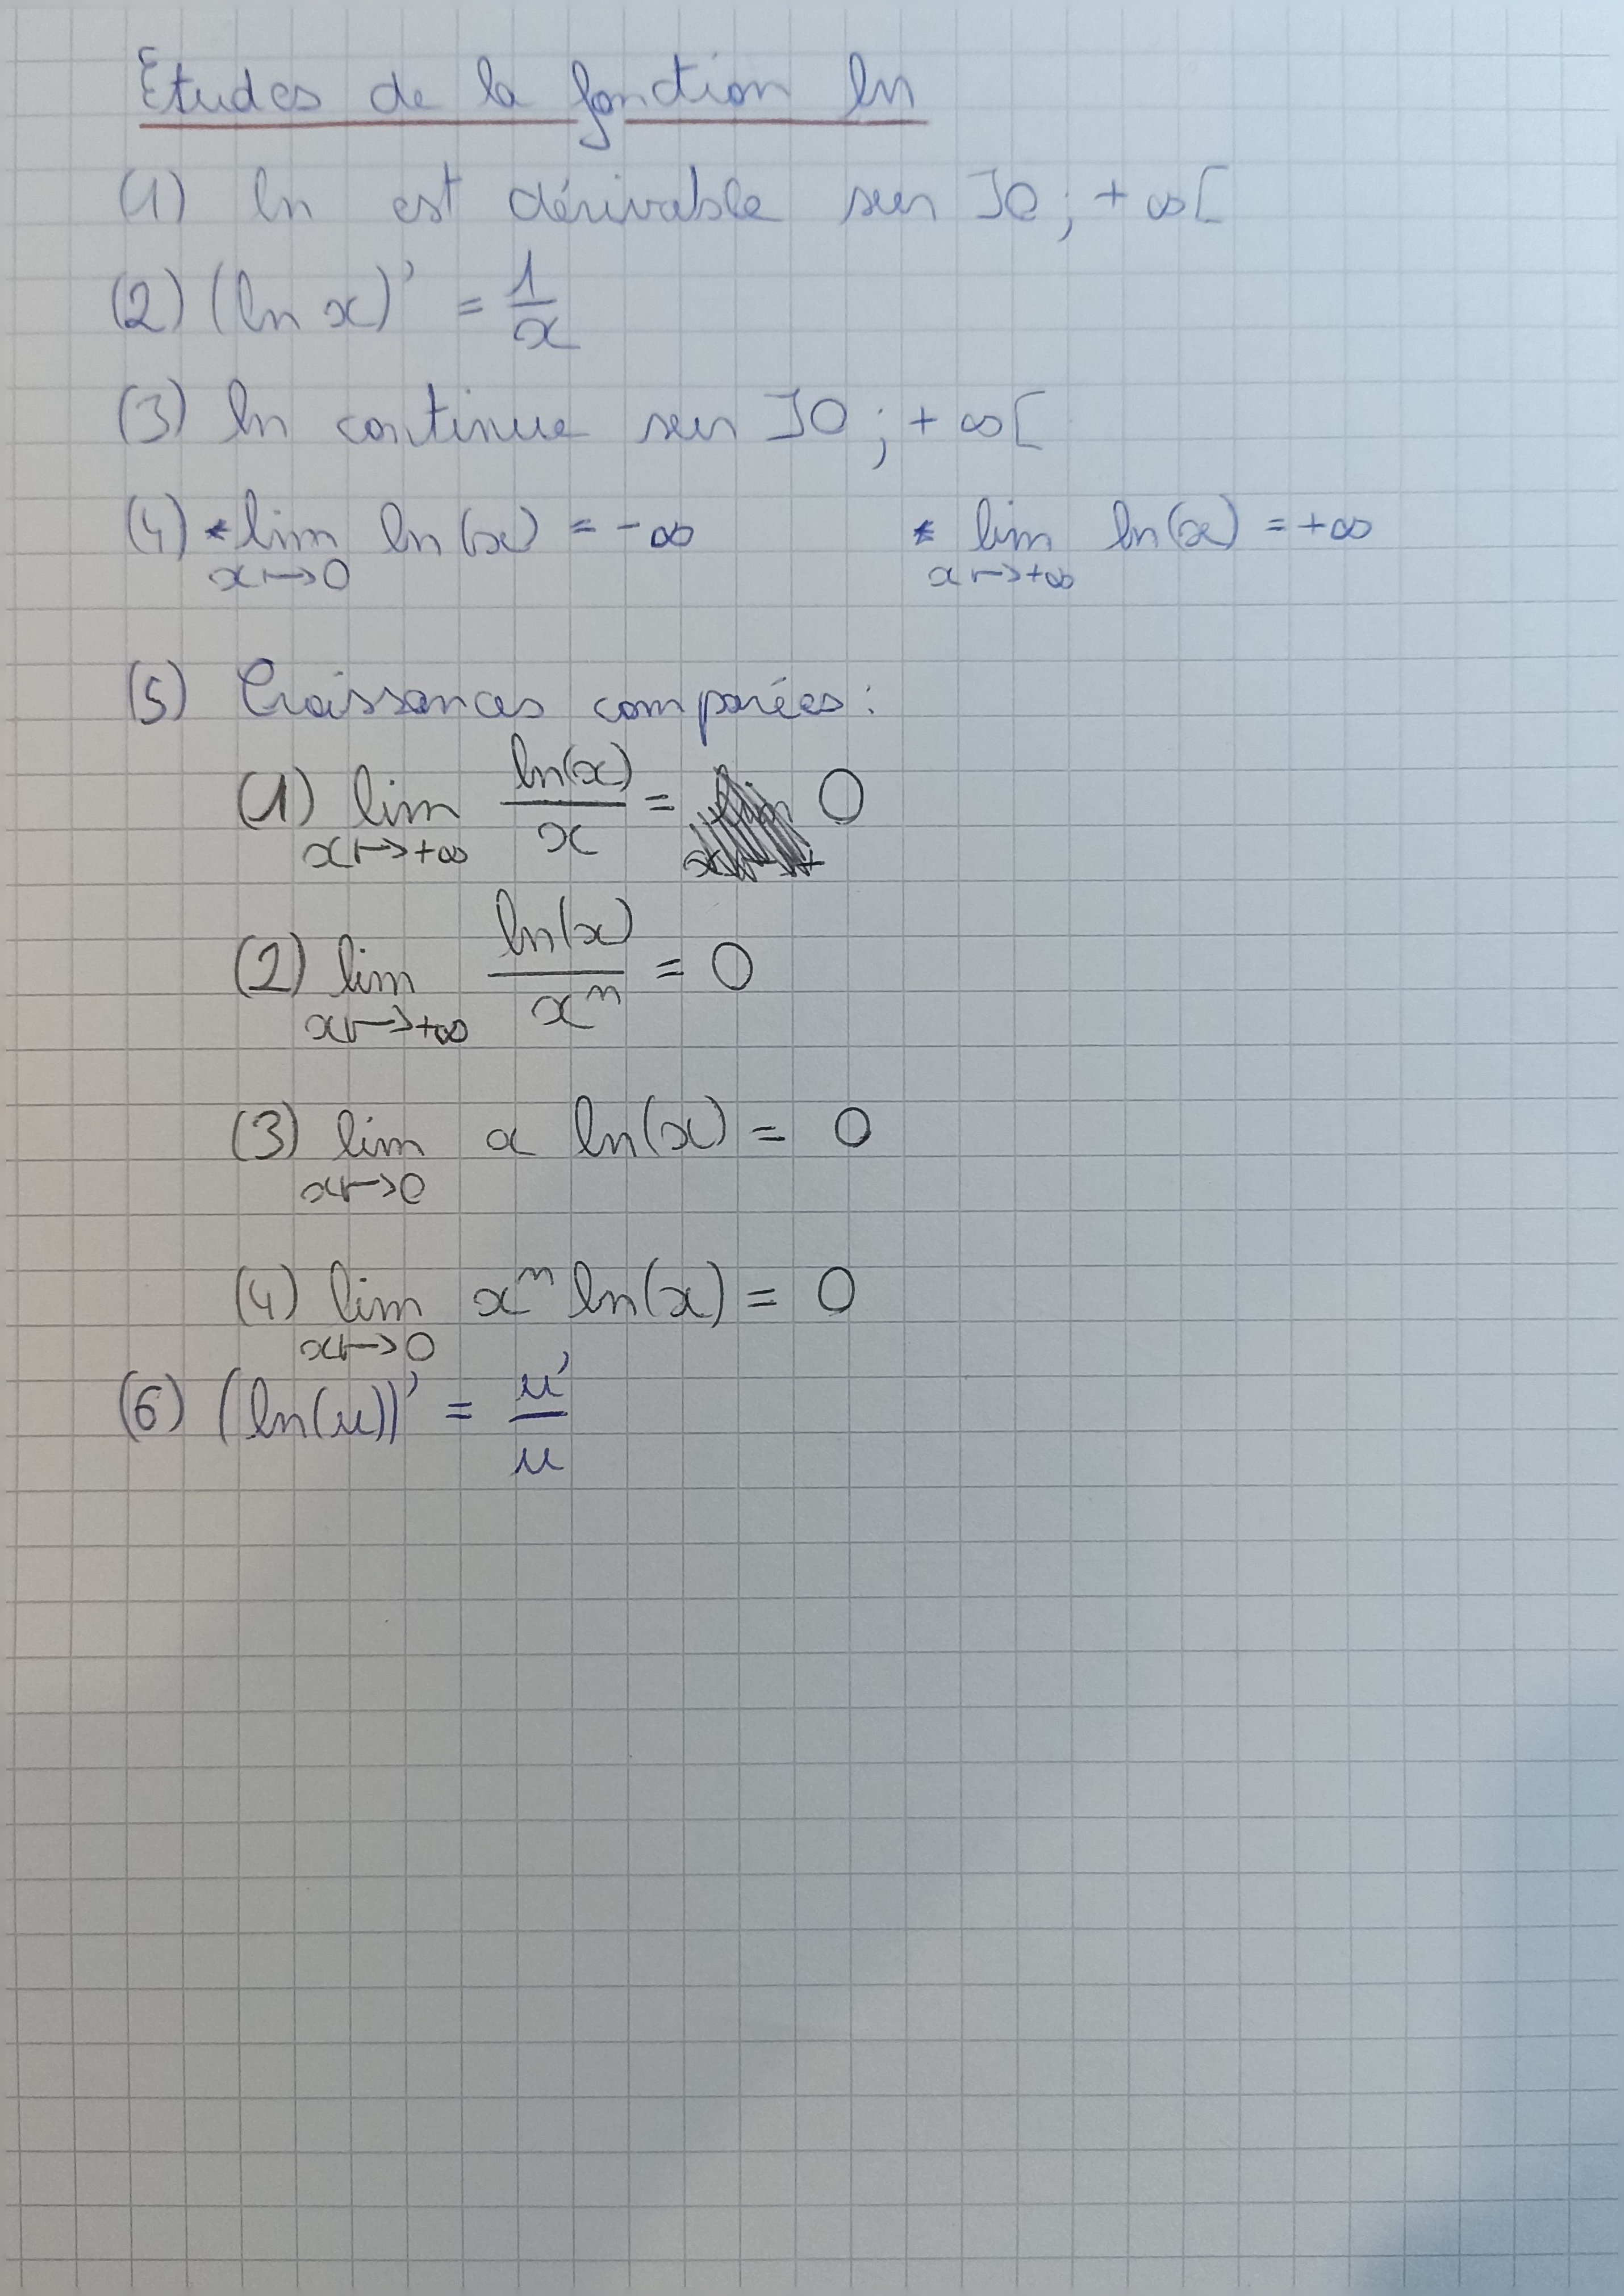 Etudes de la fonction ln
(1) ln est dérivable sur ]0 ; +∞[
(2) (ln x)' = 1/x
(3) ln continue sur ]0 ; +∞[
(4) * lim x↦0 ln(x) = -∞ * lim x↦+∞ ln(x) = +∞
(5) Croissances comparées :
(1) lim x↦+∞ ln(x)/x = 0
(2) lim x↦+∞ ln(x)/xⁿ = 0
(3) lim x↦0 x ln(x) = 0
(4) lim x↦0 xⁿ ln(x) = 0
(6) (ln(u))' = u'/u